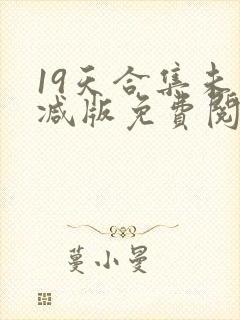 19天合集未
减版免費閱
蔓小曼